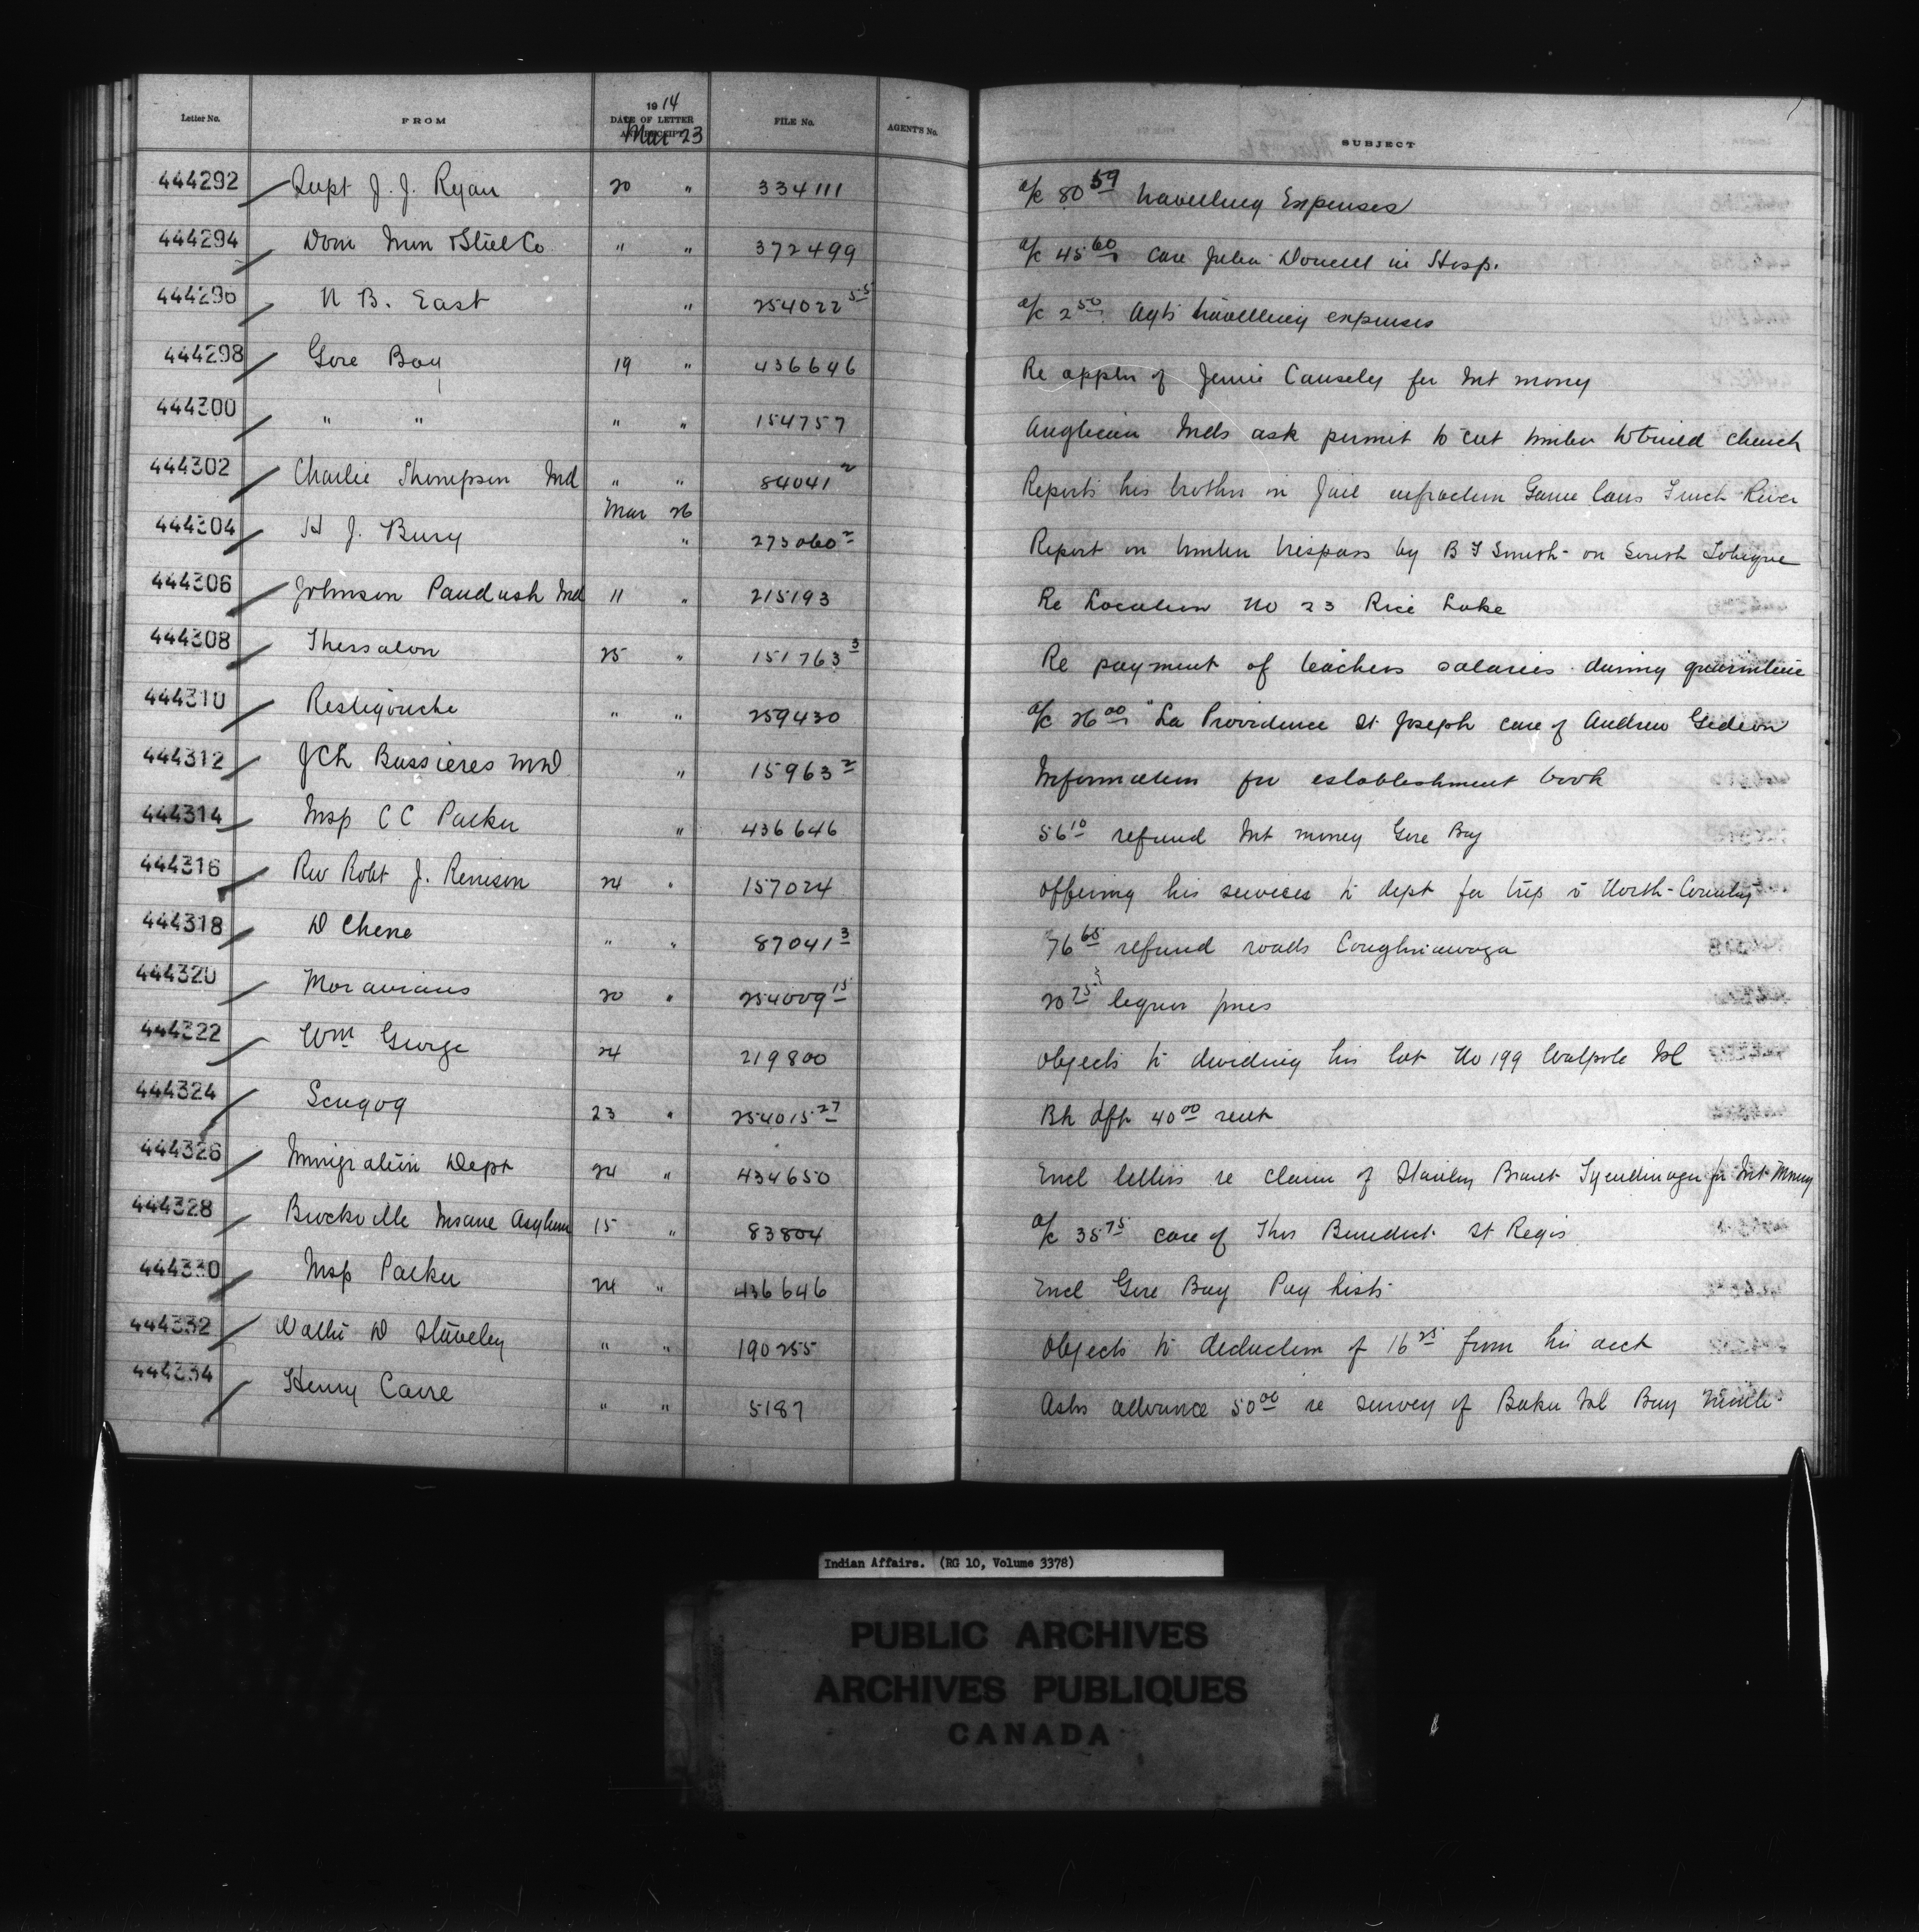 1914
Letter No. FROM DATE OF LETTER AND RECEIPT FILE No. AGENT'S No. SUBJECT
Mar 23
444292 Supt J. J. Ryan 20 " 334111 a/c 80 59 travelling Expenses
444294 Dom Iron & Steel Co " " 372499 a/c 45 60 care Julia in Hosp.
444296 N B. East " 254022 55 a/c 2 50 Agts travelling expenses
444298 Gore Bay 19 " 436646 Re appln of Jennie Causely for Int money
444300 " " " " 154757 Anglican Inds ask permit to cut timber to build church
444302 Charlie Thompson Ind " " 84041 2 Reports his brother in Jail infraction Game laws French River
Mar 26
444304 H J. Bury " 273060 2 Report on timber trespass by B Smith on South
444306 Johnson Paudash Ind 11 " 215193 Re Location No 23 Rice Lake
444308 Thessalon 25 " 151763 3 Re payment of teachers salaries during quarantine
444310 Restigouche " " 259430 a/c 26 00 "La Providence St Joseph care of Andrew Gedeon
444312 J Ch Bussieres MD " 15963 2 Information for establishment book
444314 Insp C C Parker " 436646 56 10 refund Int money Gore Bay
444316 Rev Robt J. Renison 24 " 157024 Offering his services to dept for trip to North Country
444318 D Chene " " 87041 3 76 65 refund roads Caughnawaga
444320 Moravians 20 " 254009 15 20 75 liquor fines
444322 Wm George 24 219800 Objects to dividing his lot No 199 Walpole Isl
444324 Scugog 23 " 254015 27 Bk dft 40 00 rent
444326 Immigration Dept 24 " 434650 Encl letters re claim of Stanley Brant Tyendinaga for Int Money
444328 Brockville Insane Asylum 15 " 83804 a/c 35 75 care of Thos Benedict St Regis
444330 Insp Parker 24 " 436646 Encl Gore Bay Pay lists
444332 D " " 190255 Objects to deduction of 16 25 from his acct
444334 Henry Carre " " 5187 Asks advance 50 00 re survey of Baker Isl Bay
Indian Affairs. (RG 10, Volume 3378)
PUBLIC ARCHIVES
ARCHIVES PUBLIQUES
CANADA